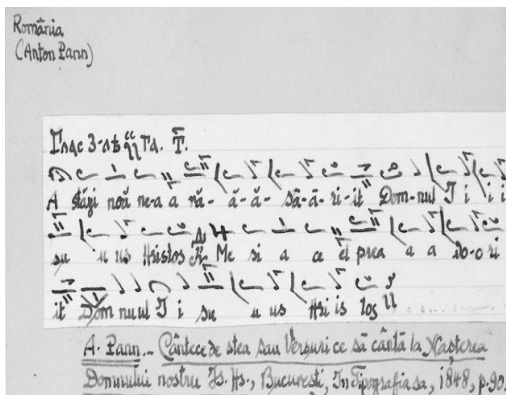 România
(Anton Pann)
Глас 3-лѣ Га.
A stăzi nouă ne-a a nă- ă- ă- să- ă- ri-it Dom-nul I i i
su u us Hristos Me si a ce el prea a a do-o ri
it Dom nuul I i su u us Hri is tos
A. Pann.- Cântece de stea sau Versuri ce să cântă la Nașterea
Domnului nostru Is. Hs., București, In Tipografia sa, 1848, p.90.